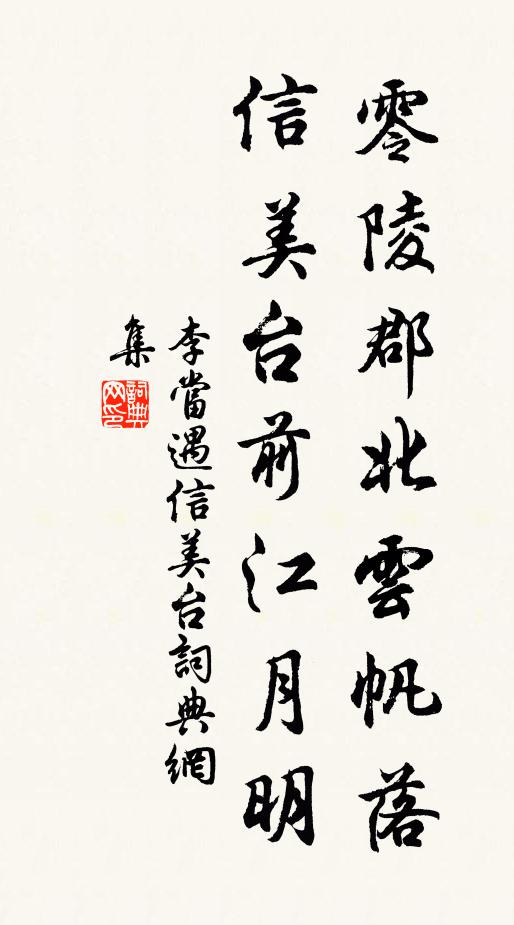 零陵郡北雲帆落
信美台前江月明
李當遇信美台詞典網
集
詞典網印